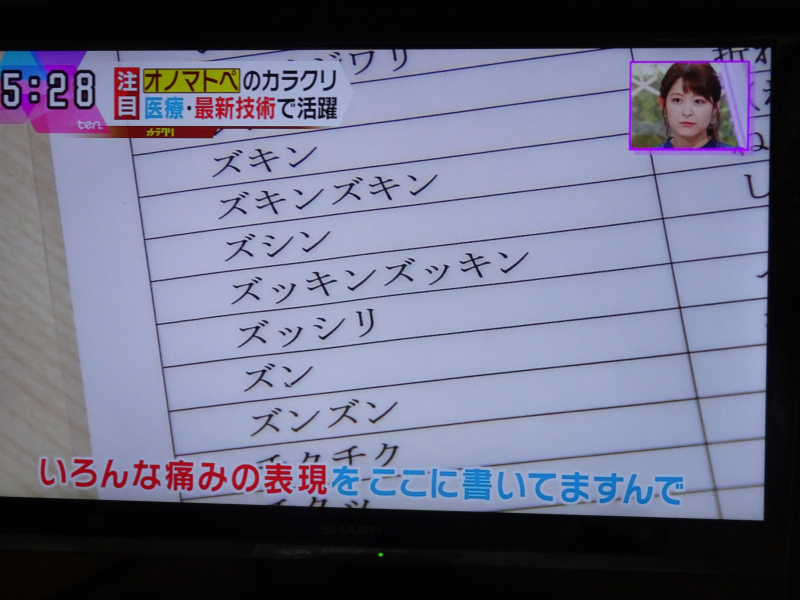 5:28
ten.
注目
オノマトペのカラクリ
医療・最新技術で活躍
カラクリ
ズキン
ズキンズキン
ズシン
ズッキンズッキン
ズッシリ
ズン
ズンズン
チクチク
いろんな痛みの表現をここに書いてますんで
SHARP